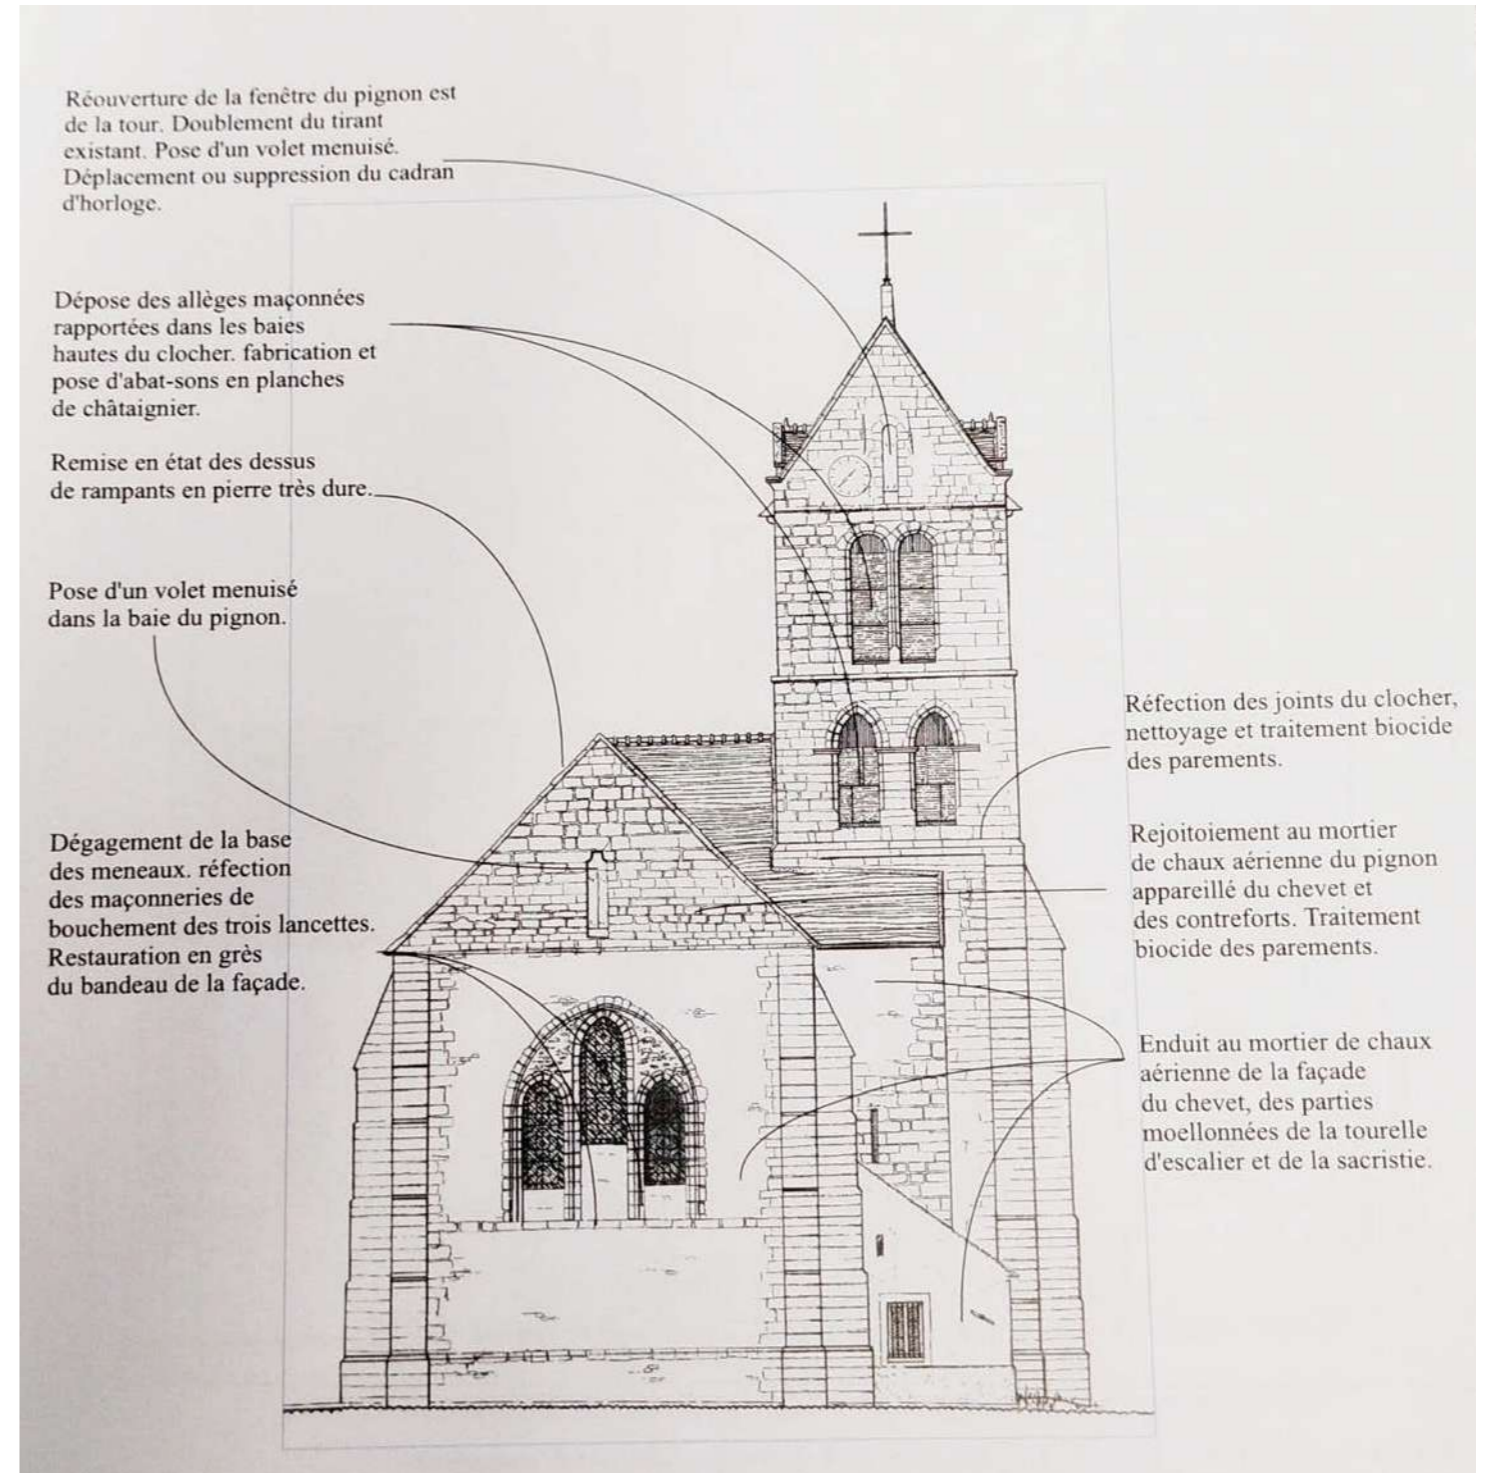 Réouverture de la fenêtre du pignon est
de la tour. Doublement du tirant
existant. Pose d'un volet menuisé.
Déplacement ou suppression du cadran
d'horloge.
Dépose des allèges maçonnées
rapportées dans les baies
hautes du clocher. fabrication et
pose d'abat-sons en planches
de châtaignier.
Remise en état des dessus
de rampants en pierre très dure.
Pose d'un volet menuisé
dans la baie du pignon.
Dégagement de la base
des meneaux. réfection
des maçonneries de
bouchement des trois lancettes.
Restauration en grès
du bandeau de la façade.
Réfection des joints du clocher,
nettoyage et traitement biocide
des parements.
Rejoitoiement au mortier
de chaux aérienne du pignon
appareillé du chevet et
des contreforts. Traitement
biocide des parements.
Enduit au mortier de chaux
aérienne de la façade
du chevet, des parties
moellonnées de la tourelle
d'escalier et de la sacristie.